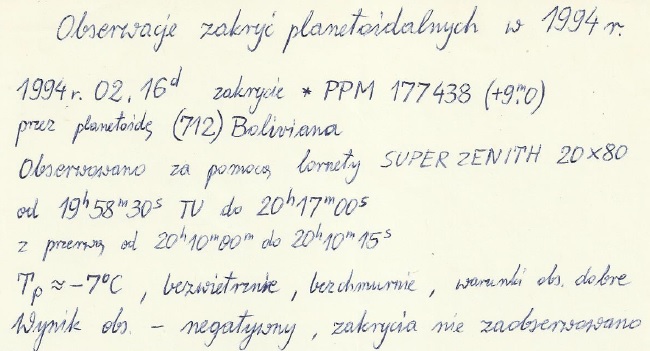 Obserwacje zakryć planetoidalnych w 1994 r.
1994 r. 02. 16ᵈ zakrycie * PPM 177438 (+9ᵐ.0)
przez planetoidę (712) Boliviana
Obserwowano za pomocą lornety SUPER ZENITH 20×80
od 19ʰ58ᵐ30ˢ TU do 20ʰ17ᵐ00ˢ
z przerwą od 20ʰ10ᵐ00ᵐ do 20ʰ10ᵐ15ˢ
Tₚ ≈ -7°C , bezwietrznie , bezchmurnie , warunki obs. dobre
Wynik obs. - negatywny , zakrycia nie zaobserwowano